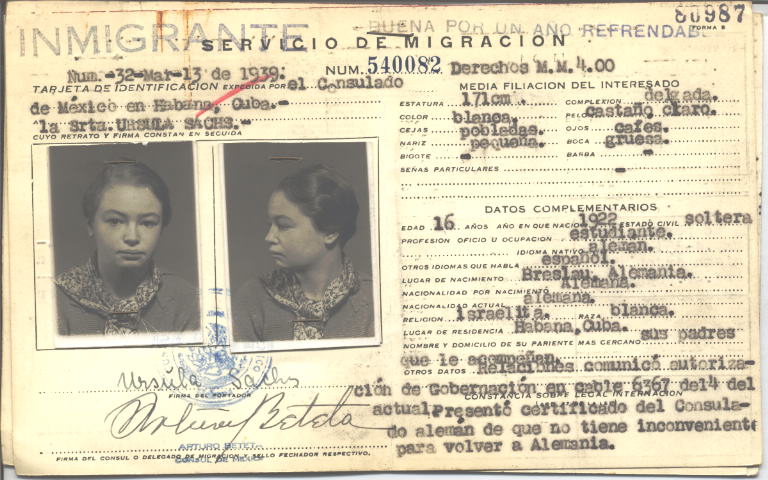 INMIGRANTE
BUENA POR UN AÑO REFRENDABLE
80987
FORMA 5
SERVICIO DE MIGRACION
Num.-32-Mar-13 de 1939.
NUM. 540082 Derechos M.M.4.00
TARJETA DE IDENTIFICACION EXPEDIDA POR el Consulado
de México en Habana, Cuba.-
a la Srta. URSULA SACHS.-
CUYO RETRATO Y FIRMA CONSTAN EN SEGUIDA
MEDIA FILIACION DEL INTERESADO
ESTATURA 171cm. COMPLEXION delgada.
COLOR blanca. PELO castaño claro.
CEJAS pobladas. OJOS cafes.
NARIZ pequeña. BOCA gruesa.
BIGOTE - BARBA -
SEÑAS PARTICULARES -
DATOS COMPLEMENTARIOS
EDAD 16 AÑOS AÑO EN QUE NACIO 1922 ESTADO CIVIL soltera
PROFESION OFICIO U OCUPACION estudiante.
IDIOMA NATIVO alemán.
OTROS IDIOMAS QUE HABLA español.
LUGAR DE NACIMIENTO Breslau, Alemania.
NACIONALIDAD POR NACIMIENTO Alemana.
NACIONALIDAD ACTUAL alemana.
RELIGION israelita. RAZA blanca.
LUGAR DE RESIDENCIA Habana, Cuba.
NOMBRE Y DOMICILIO DE SU PARIENTE MAS CERCANO sus padres
que le acompañan.
OTROS DATOS Relaciones comunicó autoriza-
ción de Gobernación en cable 6367 del 4 del
CONSTANCIA SOBRE LEGAL INTERNACION
actual. Presentó certificado del Consula-
do alemán de que no tiene inconveniente
para volver a Alemania.
Ursula Sachs
FIRMA DEL PORTADOR
Arturo Beteta
ARTURO BETETA
CONSUL DE MEXICO
FIRMA DEL CONSUL O DELEGADO DE MIGRACION Y SELLO FECHADOR RESPECTIVO.